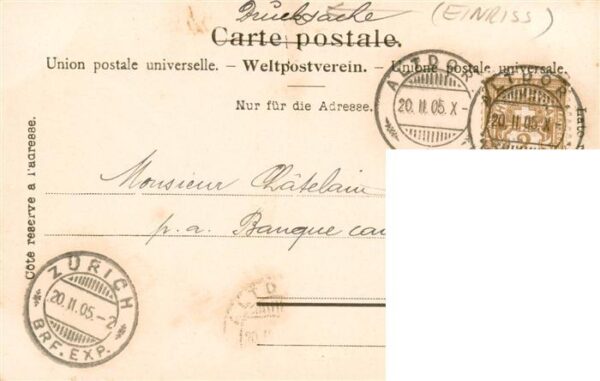 Drucksache (EINRISS)
Carte postale.
Union postale universelle. – Weltpostverein. – Unione postale universale.
Nur für die Adresse.
ALTDORF
20. II. 05. X –
ALTDORF
20. II. 05. X
Côté réservé à l'adresse.
Monsieur Châtelain
p. a. Banque can
ZÜRICH
20. II. 05. – 2
BRF. EXP.
LTD